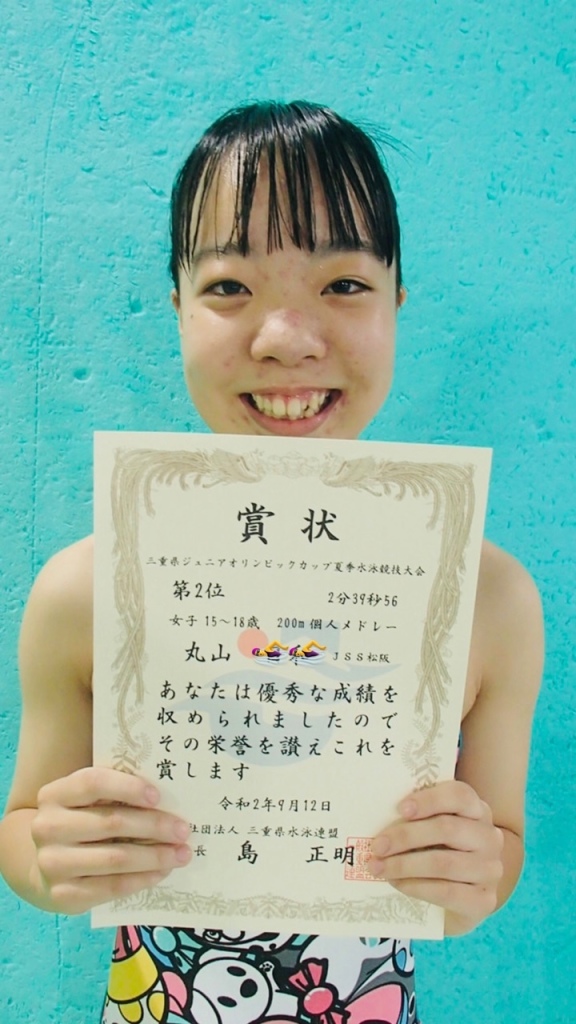 賞状
三重県ジュニアオリンピックカップ夏季水泳競技大会
第2位 2分39秒56
女子 15～18歳 200m 個人メドレー
丸山 JSS松阪
あなたは優秀な成績を
収められましたので
その栄誉を讃えこれを
賞します
令和2年9月12日
社団法人 三重県水泳連盟
長 島 正明